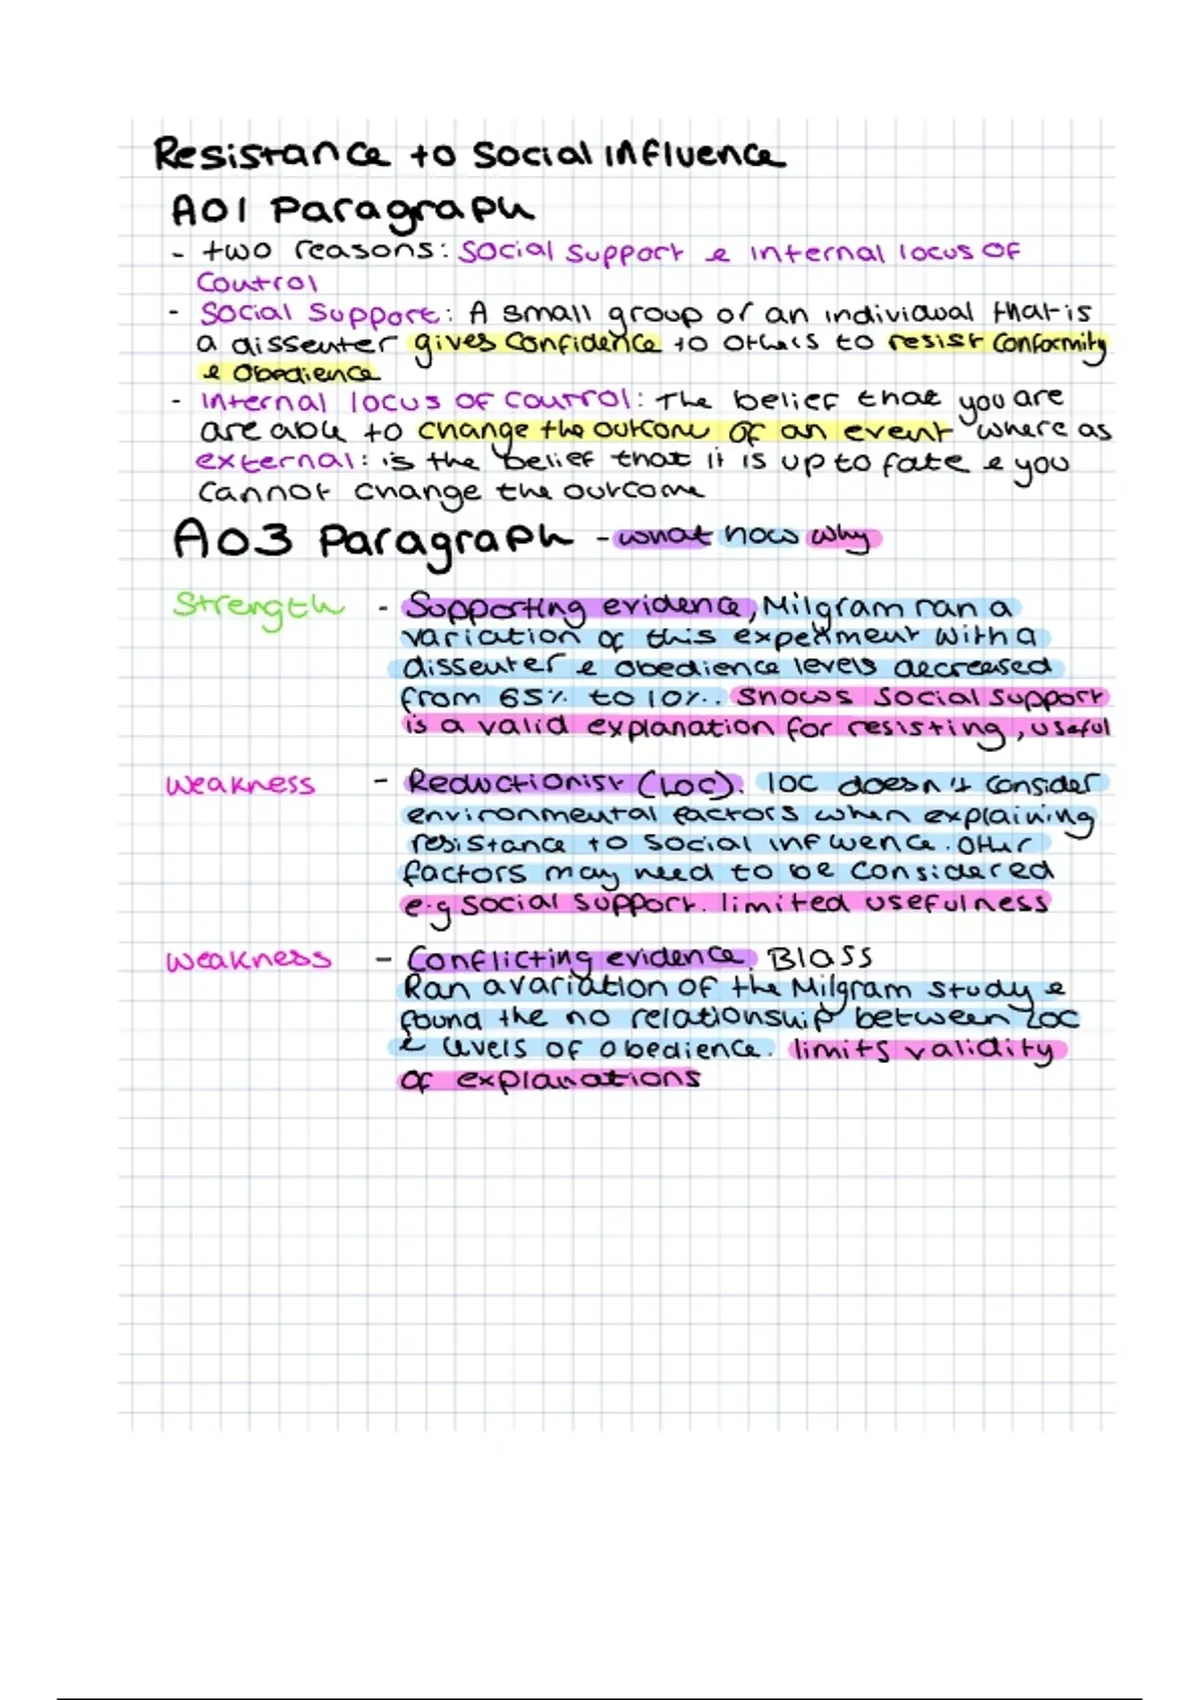 Resistance to Social Influence
AO1 Paragraph
- two reasons: Social Support & internal locus of
Control
- Social Support: A small group or an individual that is
a dissenter gives confidence to others to resist conformity
& obedience
- Internal locus of control: The belief that you are
are able to change the outcome of an event where as
external: is the belief that it is up to fate & you
cannot change the outcome
AO3 Paragraph - what how why
Strength - Supporting evidence, Milgram ran a
variation of this experiment with a
dissenter & obedience levels decreased
from 65% to 10%. Shows social support
is a valid explanation for resisting, useful
Weakness - Reductionist (LOC). loc doesn't consider
environmental factors when explaining
resistance to social influence. Other
factors may need to be considered
e.g social support. limited usefulness
Weakness - Conflicting evidence. Blass
Ran a variation of the Milgram study &
found the no relationship between LOC
& levels of obedience. limits validity
of explanations